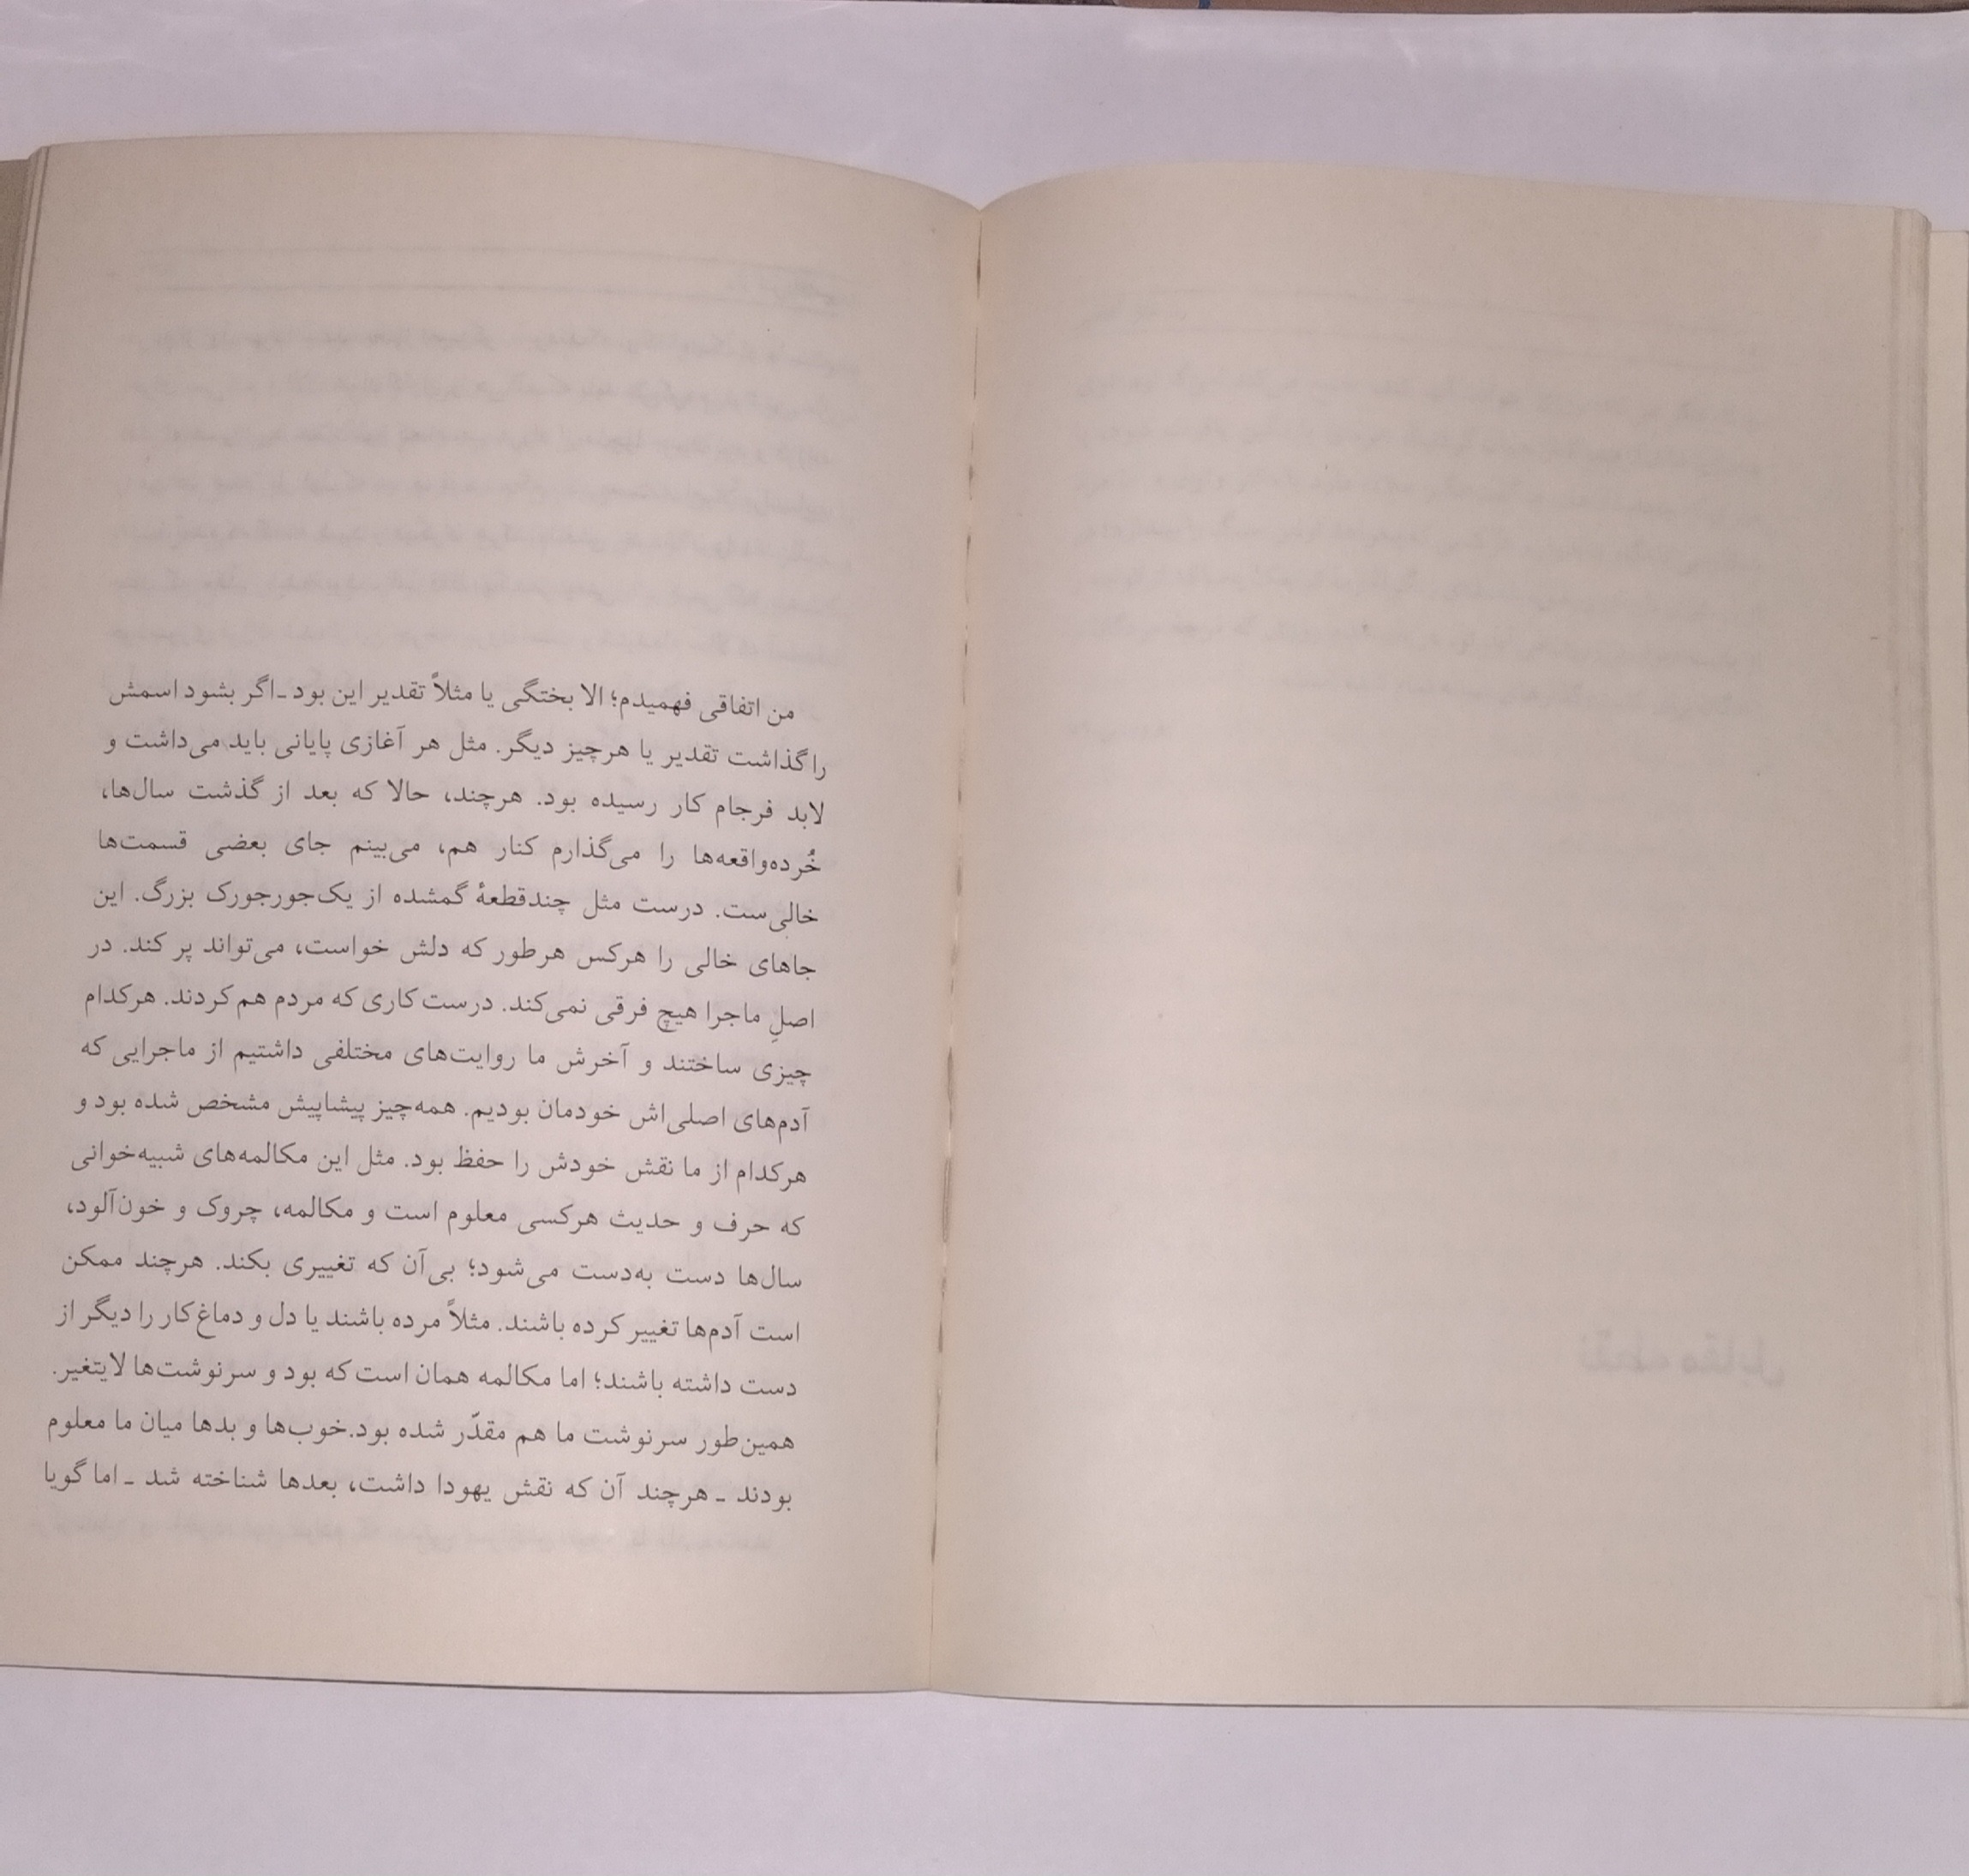 من اتفاقی فهمیدم؛ الا بختگی یا مثلاً تقدیر این بود ـ اگر بشود اسمش
را گذاشت تقدیر یا هرچیز دیگر. مثل هر آغازی پایانی باید می‌داشت و
لابد فرجام کار رسیده بود. هرچند، حالا که بعد از گذشت سال‌ها،
خُرده‌واقعه‌ها را می‌گذارم کنار هم، می‌بینم جای بعضی قسمت‌ها
خالی‌ست. درست مثل چندقطعهٔ گمشده از یک‌جورجورک بزرگ. این
جاهای خالی را هرکس هرطور که دلش خواست، می‌تواند پر کند. در
اصلِ ماجرا هیچ فرقی نمی‌کند. درست کاری که مردم هم کردند. هرکدام
چیزی ساختند و آخرش ما روایت‌های مختلفی داشتیم از ماجرایی که
آدم‌های اصلی‌اش خودمان بودیم. همه‌چیز پیشاپیش مشخص شده بود و
هرکدام از ما نقش خودش را حفظ بود. مثل این مکالمه‌های شبیه‌خوانی
که حرف و حدیث هرکسی معلوم است و مکالمه، چروک و خون‌آلود،
سال‌ها دست به‌دست می‌شود؛ بی‌آن که تغییری بکند. هرچند ممکن
است آدم‌ها تغییر کرده باشند. مثلاً مرده باشند یا دل و دماغ کار را دیگر از
دست داشته باشند؛ اما مکالمه همان است که بود و سرنوشت‌ها لایتغیر.
همین‌طور سرنوشت ما هم مقدّر شده بود.خوب‌ها و بدها میان ما معلوم
بودند ـ هرچند آن که نقش یهودا داشت، بعدها شناخته شد ـ اما گویا